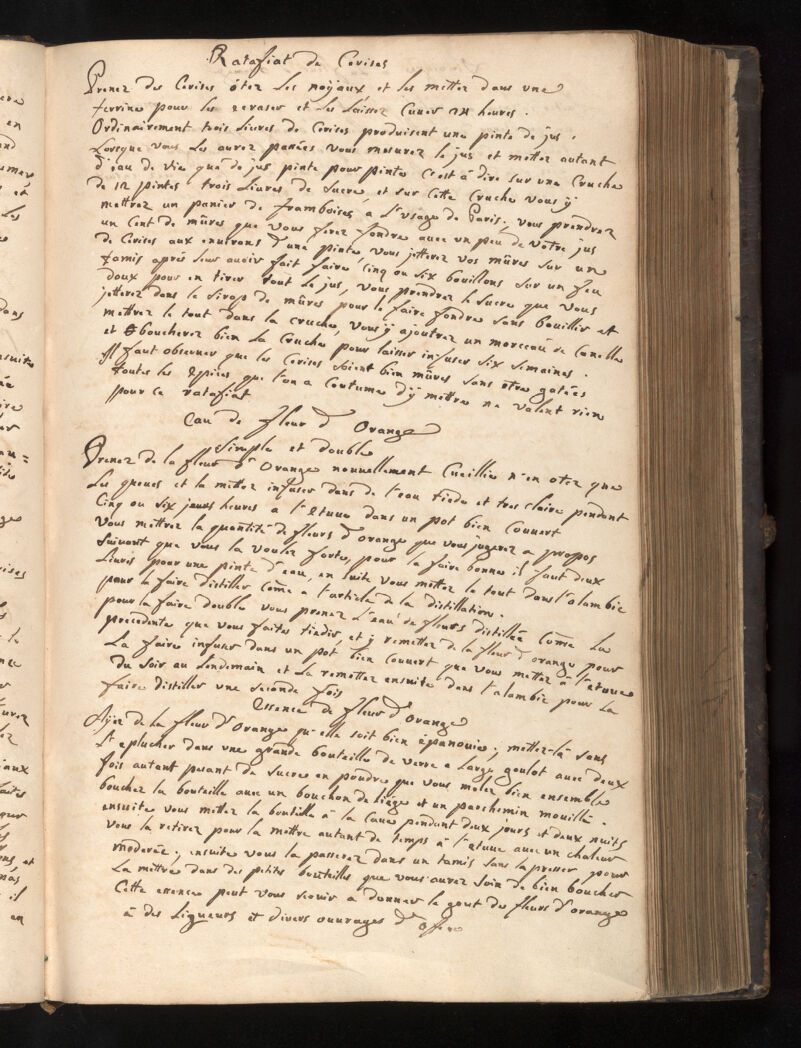 Ratafiat de Cerises
Prenez des Cerises ôtez les noÿaux et les mettez dans une
terrine pour les ecraser et les laissez Cuver 24 heures.
Ordinairement trois livres de Cerises produisent une pinte de jus.
Lorsque vous les aurez passées vous mesurez le jus et mettez autant
d'eau de vie que de jus pinte pour pinte C'est à dire sur une Cruche
de 12 pintes trois Livres de Sucre, et sur Cette Cruche vous ÿ
mettrez un panier de framboises à L'usage de Paris; vous prendrez
un Cent de mûres que vous ferez fondre avec un peu de vôtre jus
de Cerises aux environs d'une pinte, vous jetterez vos mûres sur un
tamis aprés leur avoir fait faire Cinq ou Six bouillons sur un feu
doux pour en tirer tout le jus, vous prendrez le Sucre que vous
jetterez dans le Sirop de mûres pour le faire fondre sans bouillir et
mettrez le tout dans la cruche, vous ÿ ajoutrez un morceau de Canelle
et boucherez bien la Cruche pour laisser infuser Six Semaines.
Il faut observer que les Cerises soient bien mûres sans être gatées
toutes les Epices que l'on a Coutume d'ÿ mettre ne valent rien
pour ce ratafiat
Eau de fleur d'Orange
Simple et double
Prenez de la fleur d'Orange nouvellement Cueillie n'en otez que
Les queues et la mettez infuser dans de l'eau tiede et tres claire pendant
Cinq ou Six heures a l'Etuve dans un pot bien Couvert
Vous mettrez la quantité de fleurs d'orange que vous jugerez a propos
Suivant que vous la voulez forte, pour la faire bonne il faut deux
Livres pour une pinte d'eau, en suite vous mettez le tout dans l'alambic
pour la faire distiller Come a l'article de la distillation.
pour la faire double vous prenez l'eau de fleurs distillée Come La
precedente que vous faites tiedir, et ÿ remettez de la fleur d'orange pour
La faire infuser dans un pot bien Couvert que vous mettez à l'etuve
du Soir au Lendemain et La remettez ensuite dans l'alambic pour La
faire distiller une Seconde fois
Essence de fleur d'Orange
Aÿez de La fleur d'Orange qu'elle soit bien épanouie; mettez-là sans
L'eplucher dans une grande bouteille de verre a Large goulot avec deux
fois autant pesant de Sucre en poudre que vous melez bien ensemble
bouchez la bouteille avec un bouchon de Liége et un parchemin mouillé.
ensuite vous mettez la bouteille à la Cave pendant deux jours et deux nuits
vous la retirez pour la mettre autant de temps à l'etuve avec un chaleur
moderée; ensuite vous la passerez dans un tamis sans la presser pour
La mettre dans des petites bouteilles que vous aurez soin de bien boucher
Cette essence peut vous servir a donner le gout des fleurs d'orange
à des Liqueurs et divers ouvrages d'office